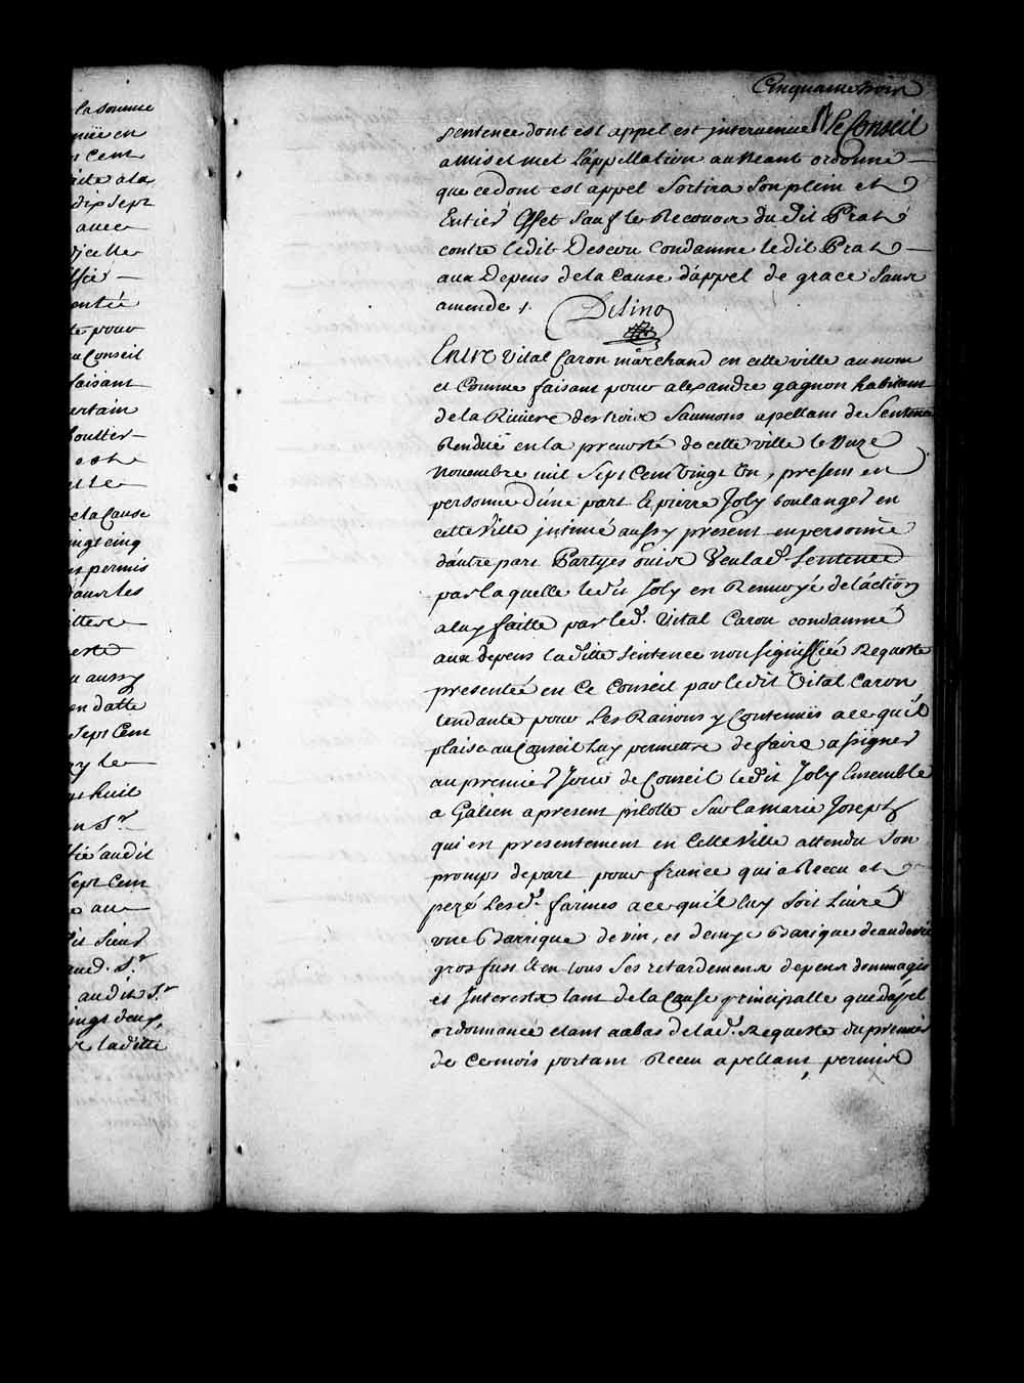 la somme
en
Cent
ite ala
dix sept
avec
dicelle
entée
pour
Conseil
faisant
ertain
este
ela Cause
ingt cinq
permis
dans les
aussy
en datte
Sept Cent
huit
n Sr
audit
Sept Cent
au
dit Sieur
aud. Sr
audit Sr
ingt deux,
laditte
Cinquantetrois
sentence dont est appel est intervenue Le Conseil
a mis et met Lappellation au Neant ordonne
que ce dont est appel Sortira Son plein et
Entier Effet Sauf le Recours du Dit Prat
contre ledit Descou Condamne ledit Prat
aux Depens de la Cause dappel de grace Sans
amende /.
Delino
Entre Vital Caron marchand en cette ville au nom
et Comme faisant pour alexandre gagnon habitant
de la Riviere des trois Saumons apellant de Sentence
Rendüe en la prevosté de cette ville le Unze
Novembre mil Sept Cent Vingt Un, present en
personne d'une part Et pierre Joly boulanger en
cette Ville intimé aussy present en personne
dautre part Partyes ouies Veu lad. Sentence
par laquelle ledit Joly en Renvoyé de laction
a luy faitte par led. Vital Caron condamné
aux depens laditte Sentence non signiffiée Requeste
presentée en ce Conseil par ledit Vital Caron
tendante pour Les Raisons y Contenües a ce quil
plaise au Conseil Luy permettre de faire assigner
au premier Jour de Conseil ledit Joly Ensemble
a Galien a present pilotte Sur la marie Joseph
qui est presentement en Cette Ville attendu Son
promps depart pour france qui a Receu et
pezé Lesd. farines a ce quil luy Soit Livré
une Barrique de vin, et demye Barrique deaudevie
gros fust Et en tous Ses retardemens depens dommages
et Interests tant de la Cause principalle que dapel
ordonnance etant au bas de lad. Requeste du premier
de ce mois portant Receu apellant, permis